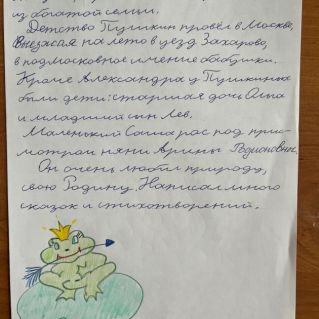 из богатой семьи.
Детство Пушкин провёл в Москве,
выезжая на лето в уезд Захарово,
в подмосковное имение бабушки.
Кроме Александра у Пушкиных
были дети: старшая дочь Ольга
и младший сын Лев.
Маленький Саша рос под прис-
мотром няни Арины Родионовны.
Он очень любил природу,
свою Родину. Написал много
сказок и стихотворений.